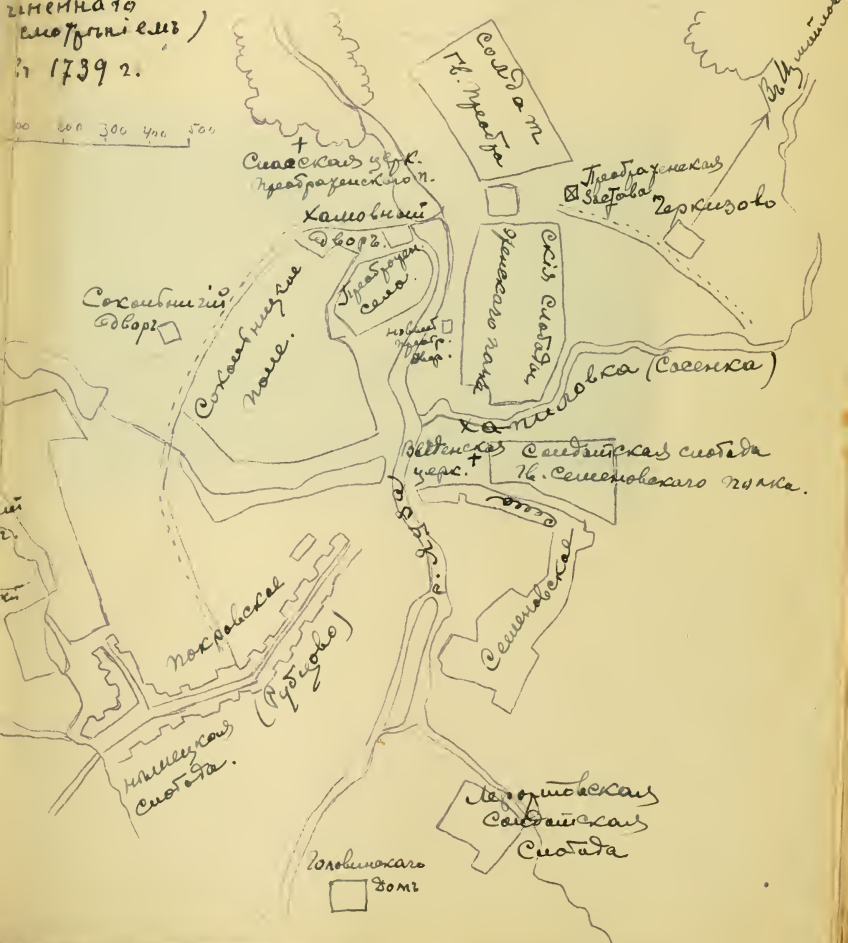 смотрѣніемъ)
1739 г.
200 300 400 500
Солдат
Гв. Преобра
Въ Измайлово
Спасская церк.
Преображенского п.
Преображенская
Застава
Черкизово
Хамовный
Дворъ.
Преображен.
село.
скія Слободы
женскаго полка
Соколничій
Дворъ
Соколницкое
поле.
новый
преобр.
двор.
Хапиловка (Сосенка)
Введенская
церк.
Солдатская слобода
Гв. Семеновскаго полка.
р. Яуза
село
Семеновское
Покровское
(Рубцово)
нѣмецкая
слобода.
Лефортовская
Солдатская
Слобода
Головинскаго
Домъ